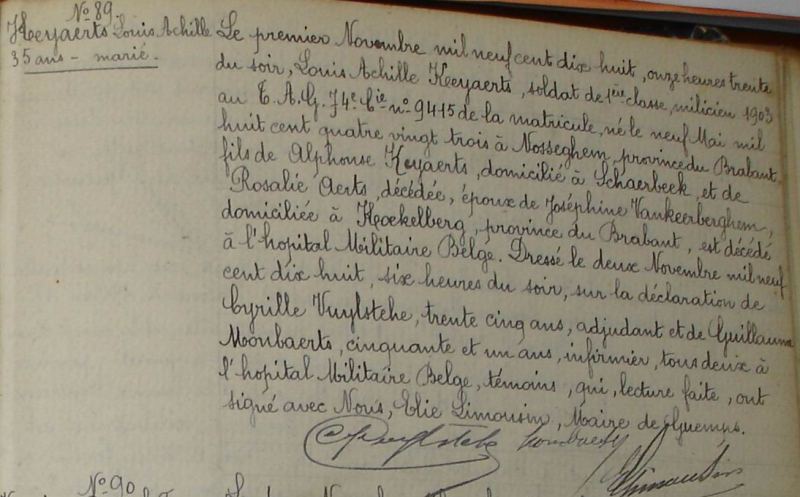 No 89
Keyaerts Louis Achille
35 ans - marié.
Le premier Novembre mil neuf cent dix huit, onze heures trente
du soir, Louis Achille Keyaerts, soldat de 1ère classe, milicien 1903
au T.A.G. J4e Cie no 9415 de la matricule, né le neuf Mai mil
huit cent quatre vingt trois à Nosseghem, province du Brabant,
fils de Alphonse Keyaerts, domicilié à Schaerbeek, et de
Rosalie Aerts, décédée, époux de Joséphine Vankeerberghem,
domiciliée à Koekelberg, province du Brabant, est décédé
à l'hopital Militaire Belge. Dressé le deux Novembre mil neuf
cent dix huit, six heures du soir, sur la déclaration de
Cyrille Vuylsteke, trente cinq ans, adjudant et de Guillaume
Monbaerts, cinquante et un ans, infirmier, tous deux à
l'hopital Militaire Belge, témoins, qui, lecture faite, ont
signé avec Nous, Elie Limousin, Maire de Guemps.
CVuylsteke Monbaerts
Limousin
No 90